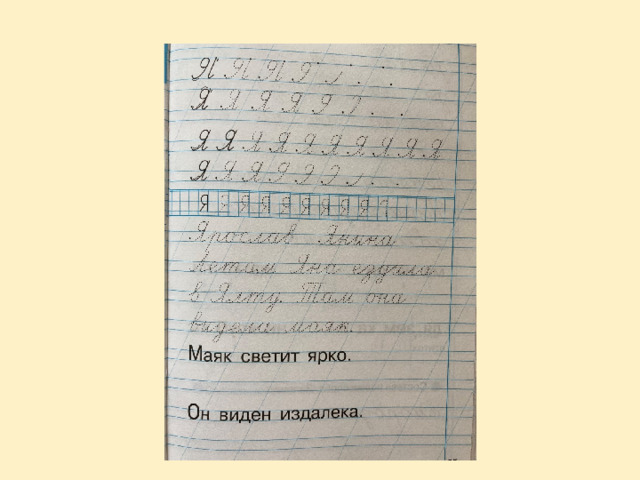 Я Я Я Я
Я Я Я Я Я Я
Я Я Я Я Я Я Я Я Я Я
Я Я Я Я Я Я
Я Я Я Я Я Я Я Я Я
Ярослав Янина
Летом Яна ездила
в Ялту. Там она
видела маяк.
Маяк светит ярко.
Он виден издалека.